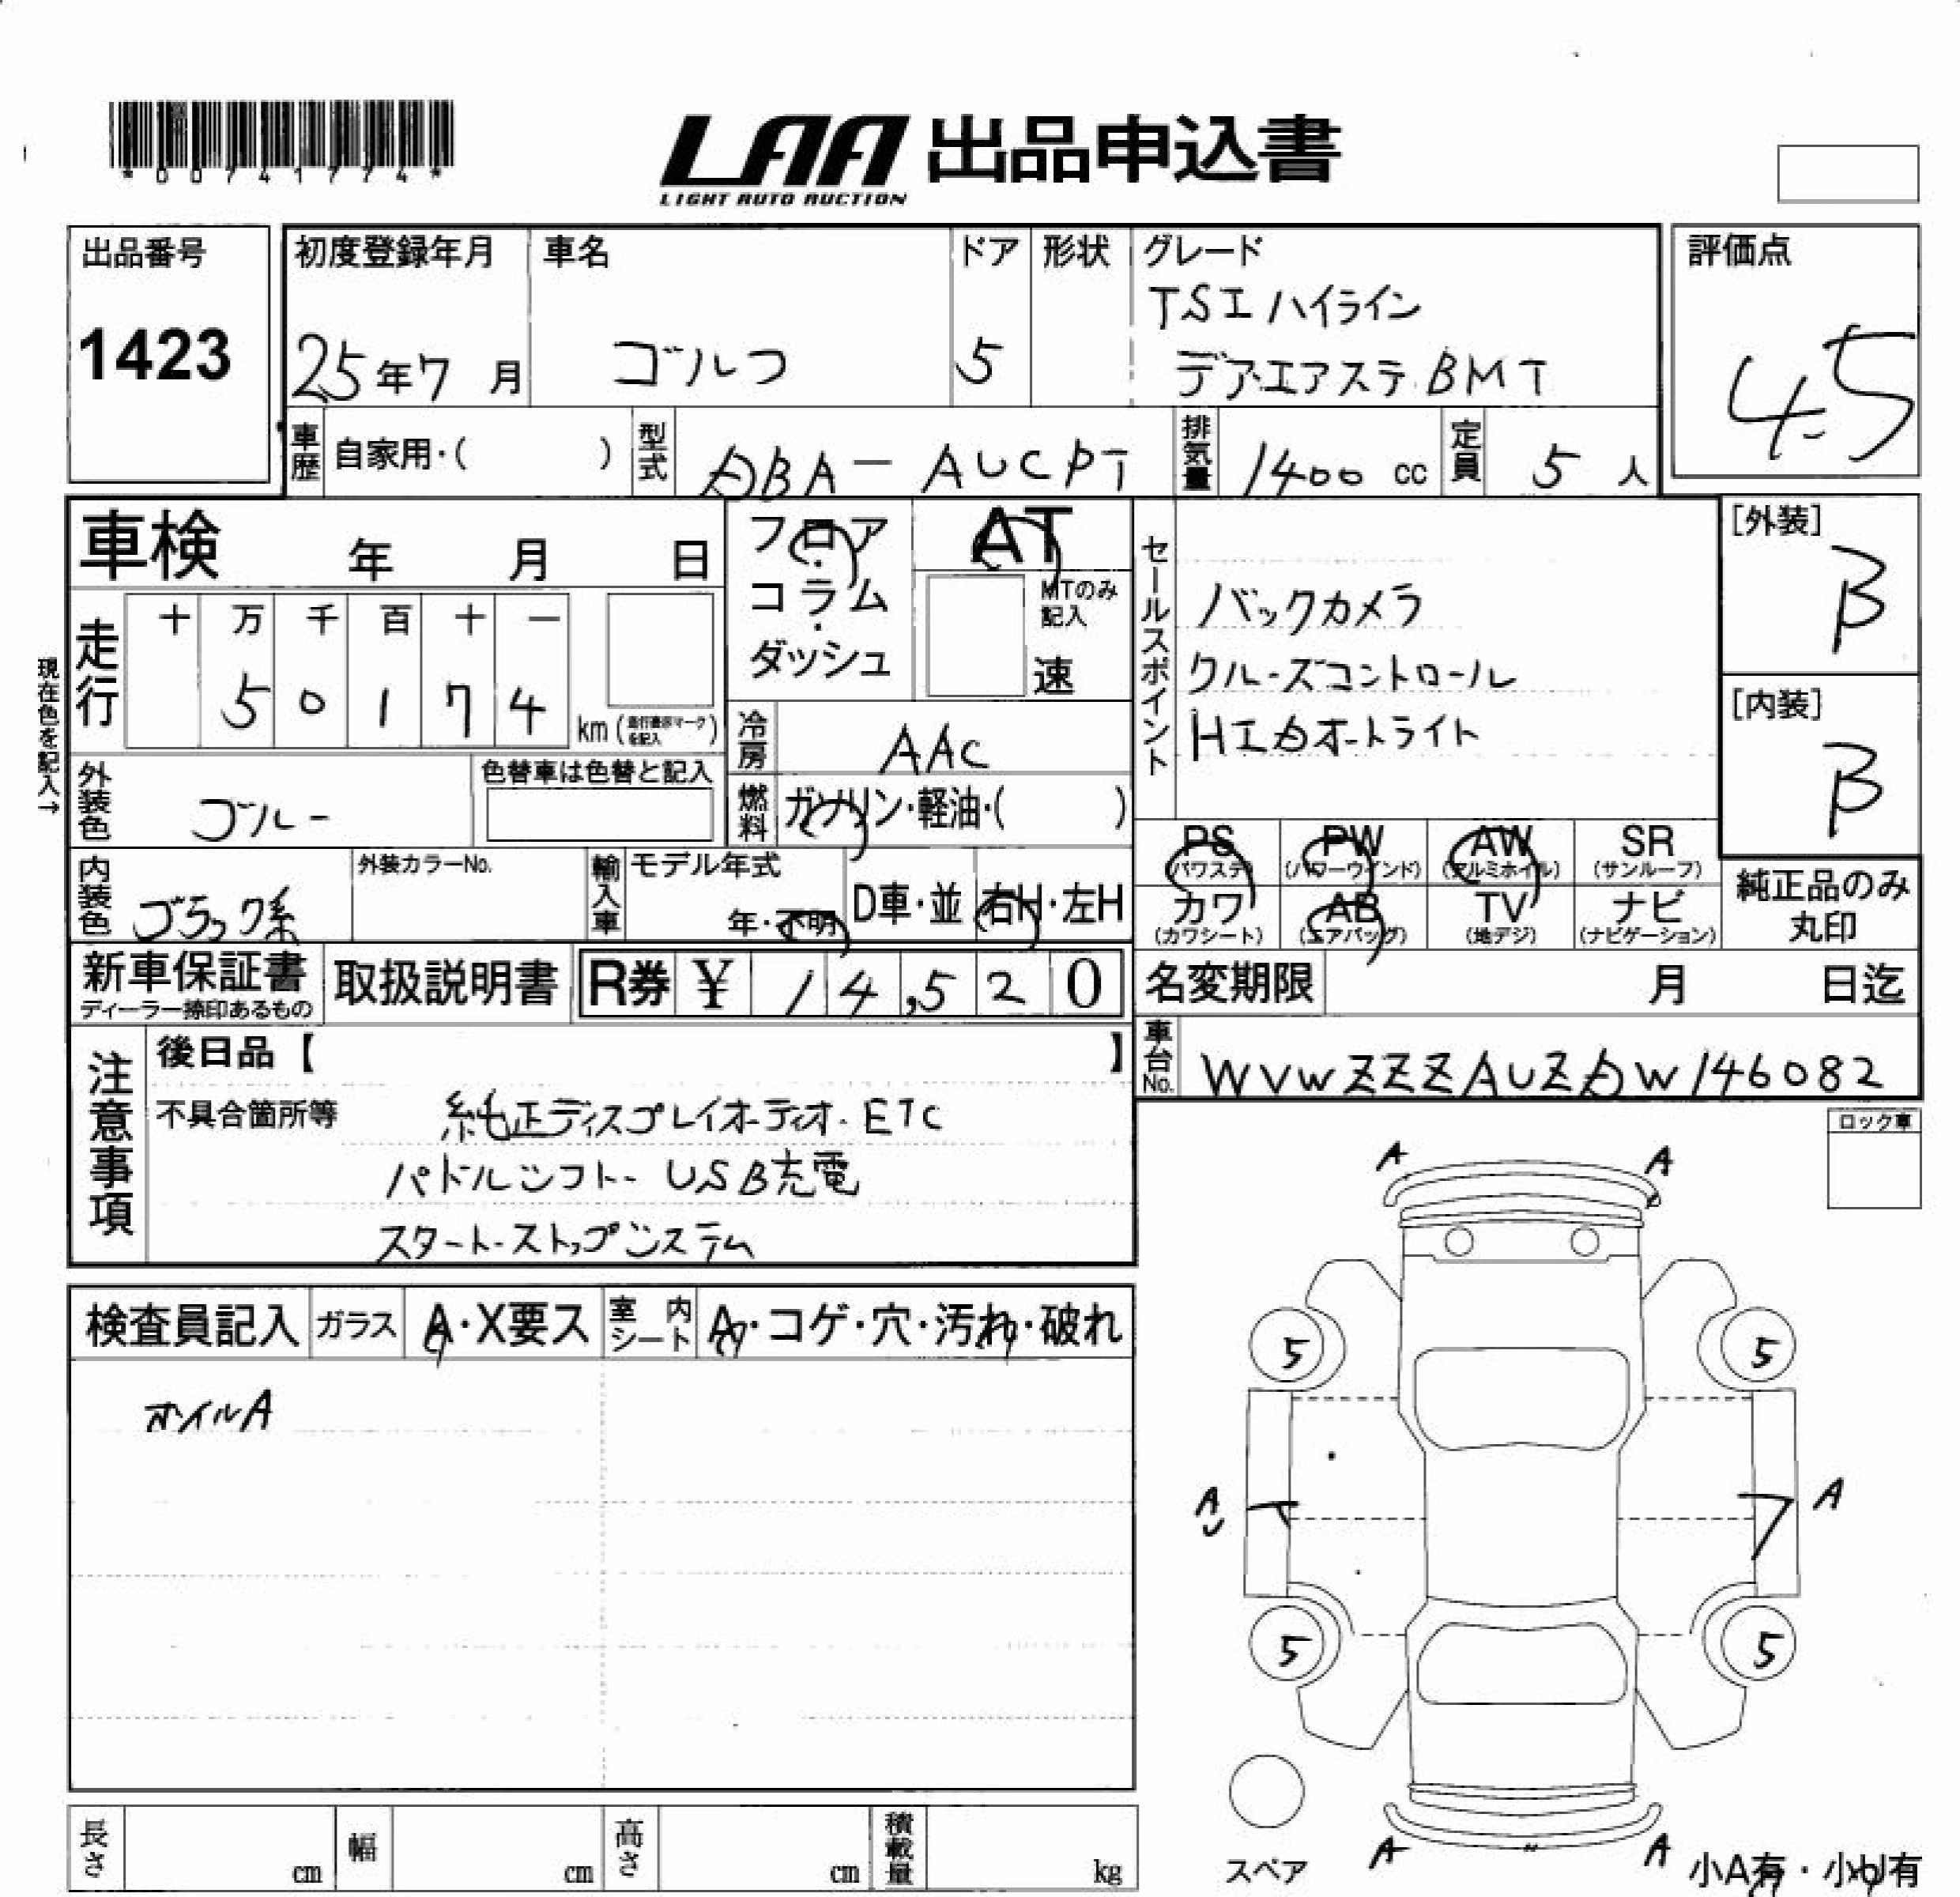 *00741774*
LAA 出品申込書
LIGHT AUTO AUCTION
出品番号
1423
初度登録年月
25年7月
車名
ゴルフ
ドア
5
形状
グレード
TSIハイライン
デア・エアステ BMT
評価点
4.5
車歴 自家用・( )
型式 DBA-AUCPT
排気量 1400 cc
定員 5 人
車検 年 月 日
フロア・コラム・ダッシュ
AT
MTのみ記入
速
セールスポイント
バックカメラ
クルーズコントロール
HIDオートライト
[外装]
B
[内装]
B
現在色を記入→
走行
十 万 千 百 十 一
5 0 1 7 4 km (走行表示マークを記入)
冷房 AAC
外装色 ブルー
色替車は色替と記入
燃料 ガソリン・軽油・( )
PS (パワステ)
PW (パワーウインド)
AW (アルミホイル)
SR (サンルーフ)
カワ (カワシート)
AB (エアバッグ)
TV (地デジ)
ナビ (ナビゲーション)
純正品のみ丸印
内装色 ブラック系
外装カラーNo.
輸入車
モデル年式
年・不明
D車・並
右H・左H
新車保証書
ディーラー捺印あるもの
取扱説明書
R券 ¥ 14,520
名変期限 月 日迄
車台No. WVWZZZAUZDW146082
注意事項
後日品【 】
不具合箇所等
純正ディスプレイオーディオ・ETC
パドルシフト・USB充電
スタート・ストップシステム
ロック車
検査員記入
ガラス A・X要ス
室内シート A・コゲ・穴・汚れ・破れ
ホイルA
A A
5 5
A A
5 5
A A
スペア
小A有・小U有
長さ cm
幅 cm
高さ cm
積載量 kg